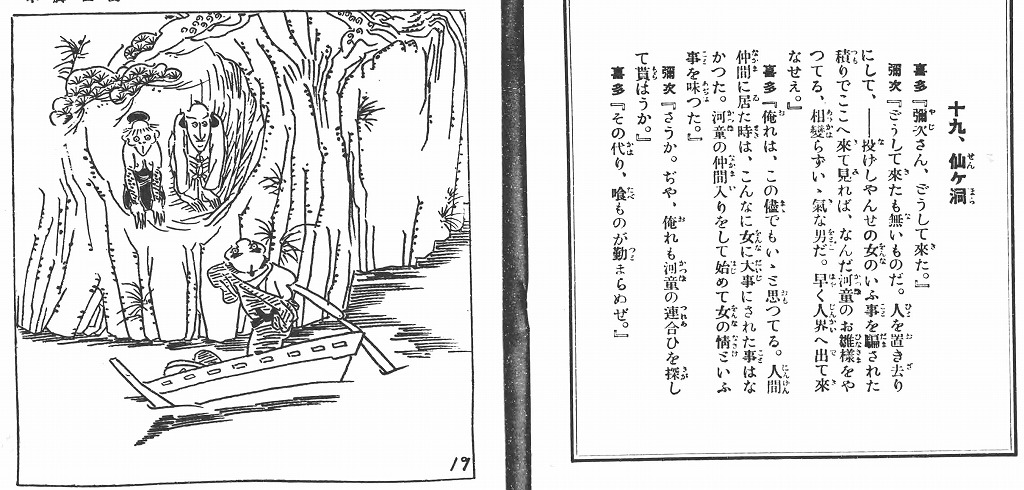 十九、仙ヶ洞
喜多『彌次さん、どうして來た。』
彌次『どうして來たも無いものだ。人を置き去り
にして、――投げしやんせの女のいふ事を騙された
積りでここへ來て見れば、なんだ河童のお雛樣をや
つてる、相變らずいゝ氣な男だ。早く人界へ出て來
なせえ。』
喜多『俺れは、この儘でもいゝと思つてる。人間
仲間に居た時は、こんなに女に大事にされた事はな
かつた。河童の仲間入りをして始めて女の情といふ
事を味つた。』
彌次『さうか。ぢや、俺れも河童の連合ひを探し
て貰はうか。』
喜多『その代り、喰ものが勤まらぬぜ。』
19